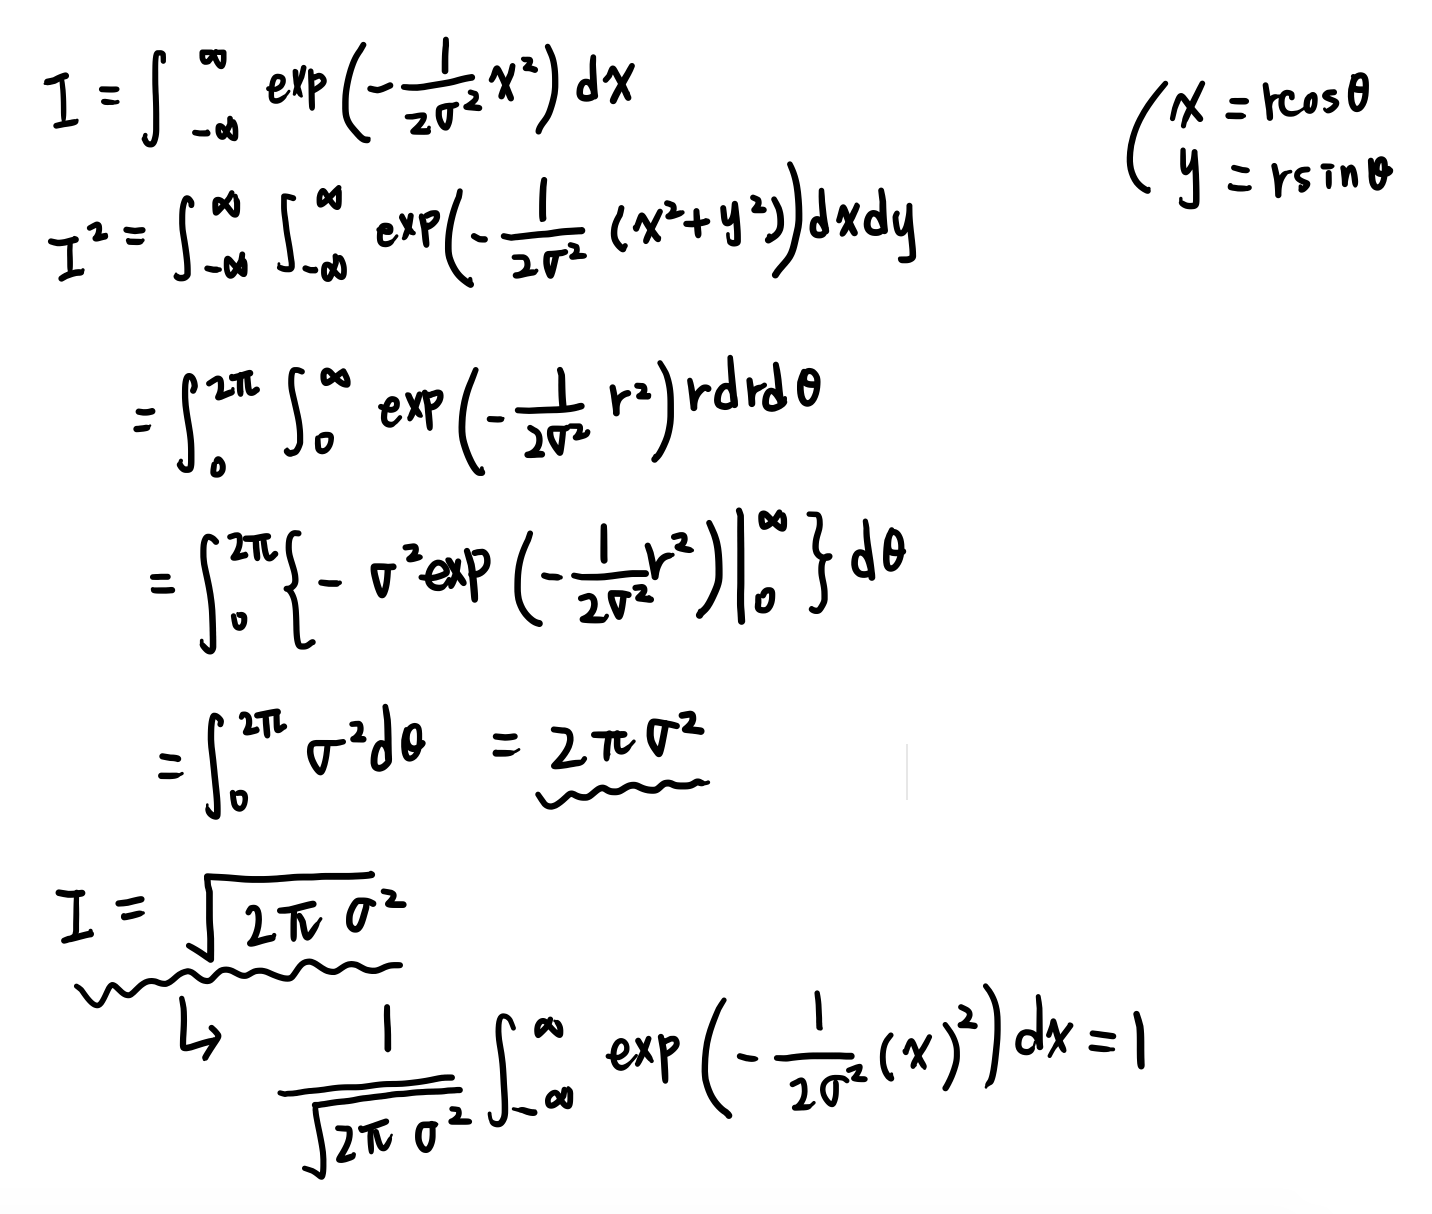 I = ∫_{-∞}^{∞} exp(-\frac{1}{2σ^2}x^2) dx
(x = rcosθ
y = rsinθ
I^2 = ∫_{-∞}^{∞} ∫_{-∞}^{∞} exp(-\frac{1}{2σ^2}(x^2+y^2))dxdy
= ∫_{0}^{2π} ∫_{0}^{∞} exp(-\frac{1}{2σ^2}r^2)rdrdθ
= ∫_{0}^{2π}{-σ^2exp(-\frac{1}{2σ^2}r^2)|_{0}^{∞}}dθ
= ∫_{0}^{2π}σ^2dθ = 2πσ^2
I = \sqrt{2πσ^2}
↳ \frac{1}{\sqrt{2πσ^2}}∫_{-∞}^{∞} exp(-\frac{1}{2σ^2}(x)^2)dx = 1